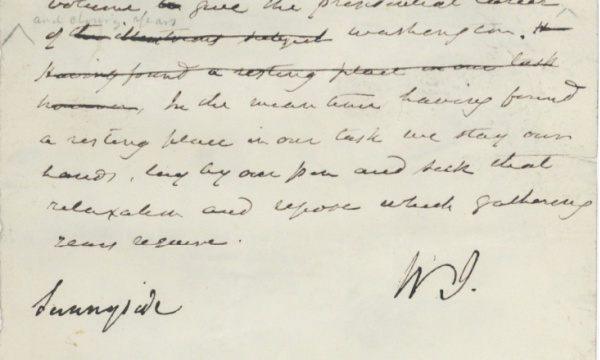 volume, to give the presidential career
and closing years
of the illustrious subject Washington.
Having found a resting place in our task
however, In the mean time having found
a resting place in our task we stay our
hands, lay by our pen and seek that
relaxation and repose which gathering
years require.
W. I.
Sunnyside